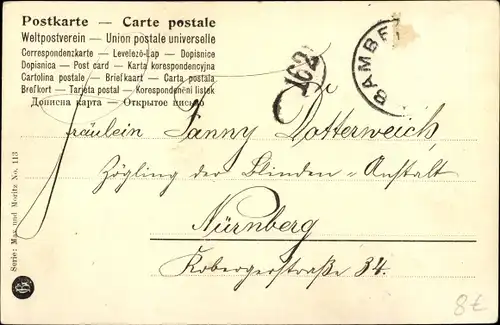 Postkarte — Carte postale
Weltpostverein — Union postale universelle
Correspondenzkarte — Levelező-Lap — Dopisnice
Dopisnica — Post card — Karta korespondencyjna
Cartolina postale — Briefkaart — Carta postala
Brefkort — Tarjeta postal — Korespondenční listek
Дописна карта — Открытое письмо
162
BAMBE
An
Fräulein Fanny Dotterweich,
Zögling der Blinden-Anstalt
Nürnberg
Kobergerstraße 34.
Serie: Max und Moritz No. 113
8€